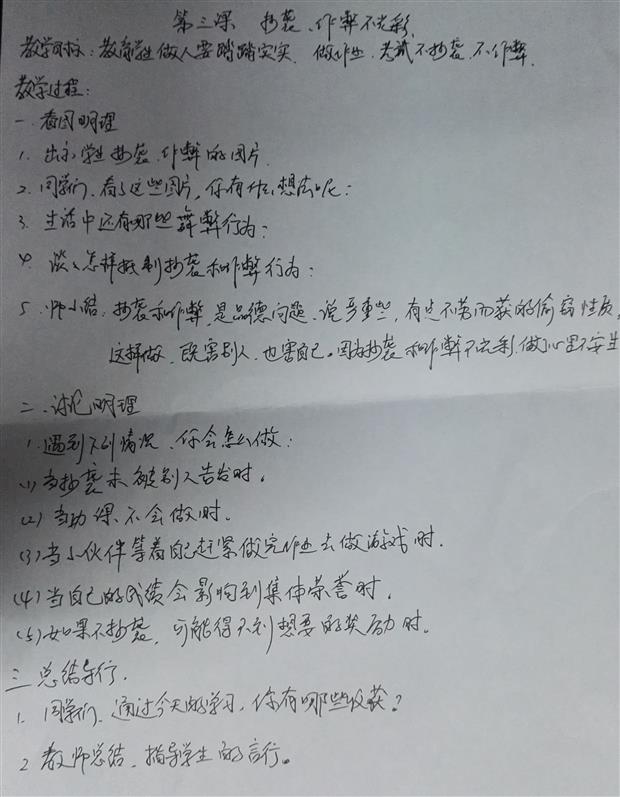 第三课 抄袭、作弊不光彩
教学目标:教育学生做人要踏踏实实、做作业、考试不抄袭、不作弊.
教学过程:
一.看图明理
1. 出示学生抄袭、作弊的图片.
2. 同学们、看了这些图片,你有什么想法呢:
3. 生活中还有哪些舞弊行为:
4. 谈谈怎样抵制抄袭和作弊行为:
5. 师小结:抄袭和作弊,是品德问题、说严重些,有点不劳而获的偷窃性质,
这样做、既害别人、也害自己。因为抄袭和作弊不光彩.做了心里不安生
二、讨论明理
1.遇到下列情况、你会怎么做:
(1)当抄袭未被别人告发时。
(2)当功课不会做时。
(3)当小伙伴等着自己赶紧做完作业去做游戏时.
(4)当自己的成绩会影响到集体荣誉时.
(5)如果不抄袭,可能得不到想要的奖励时。
三总结导行.
1. 同学们、通过今天的学习、你有哪些收获?
2 教师总结、指导学生的言行。